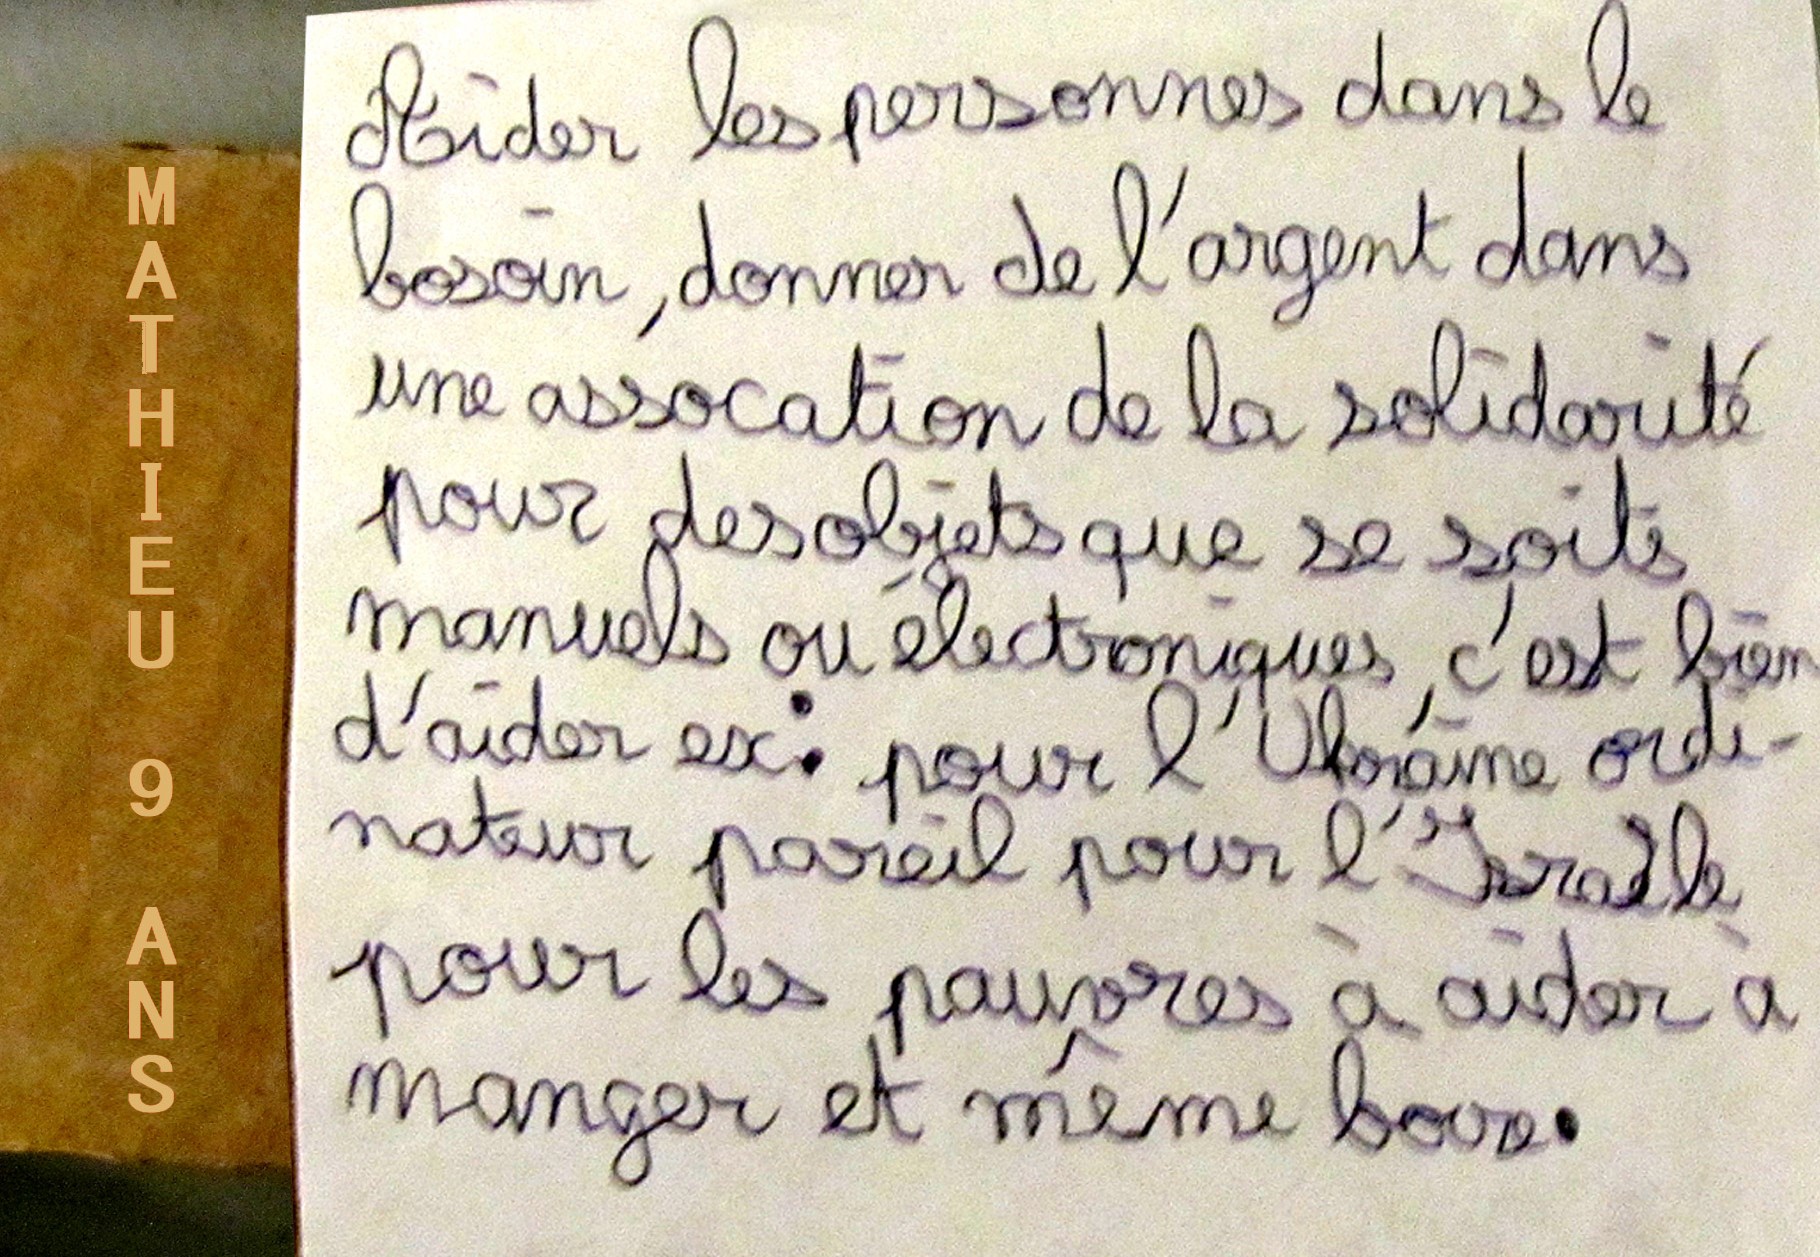 MATHIEU 9 ANS
Aider les personnes dans le
besoin, donner de l'argent dans
une assocation de la solidarité
pour des objets que se soits
manuels ou électroniques, c'est bien
d'aider ex: pour l'Ukraine ordi-
nateur pareil pour l'Israële
pour les pauvres à aider à
manger et même boire.